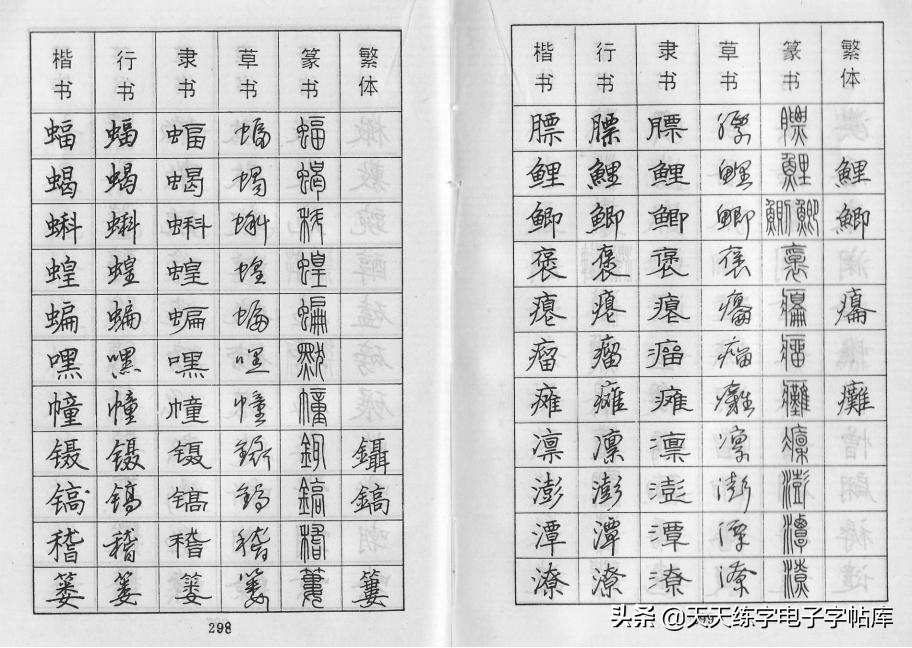 楷书 行书 隶书 草书 篆书 繁体
蝠 蝠 蝠 蝠 蝠
蝎 蝎 蝎 蝎 蝎
蝌 蝌 蝌 蝌
蝗 蝗 蝗 蝗 蝗
蝙 蝙 蝙 蝙 蝙
嘿 嘿 嘿 嘿
幢 幢 幢 幢 幢
镊 镊 镊 镊 鑷
镐 镐 镐 镐 鎬 鎬
稽 稽 稽 稽 稽
篓 篓 篓 篓 簍 簍
298
楷书 行书 隶书 草书 篆书 繁体
膘 膘 膘 膘 膘
鲤 鲤 鲤 鲤 鯉 鯉
鲫 鲫 鲫 鲫 鯽
褒 褒 褒 褒 褒
瘪 瘪 瘪 癟
瘤 瘤 瘤 瘤 瘤
瘫 瘫 瘫 瘫 癱 癱
凛 凛 凛 凛 凛
澎 澎 澎 澎 澎
潭 潭 潭 潭 潭
潦 潦 潦 潦 潦
头条 @天天练字电子字帖库